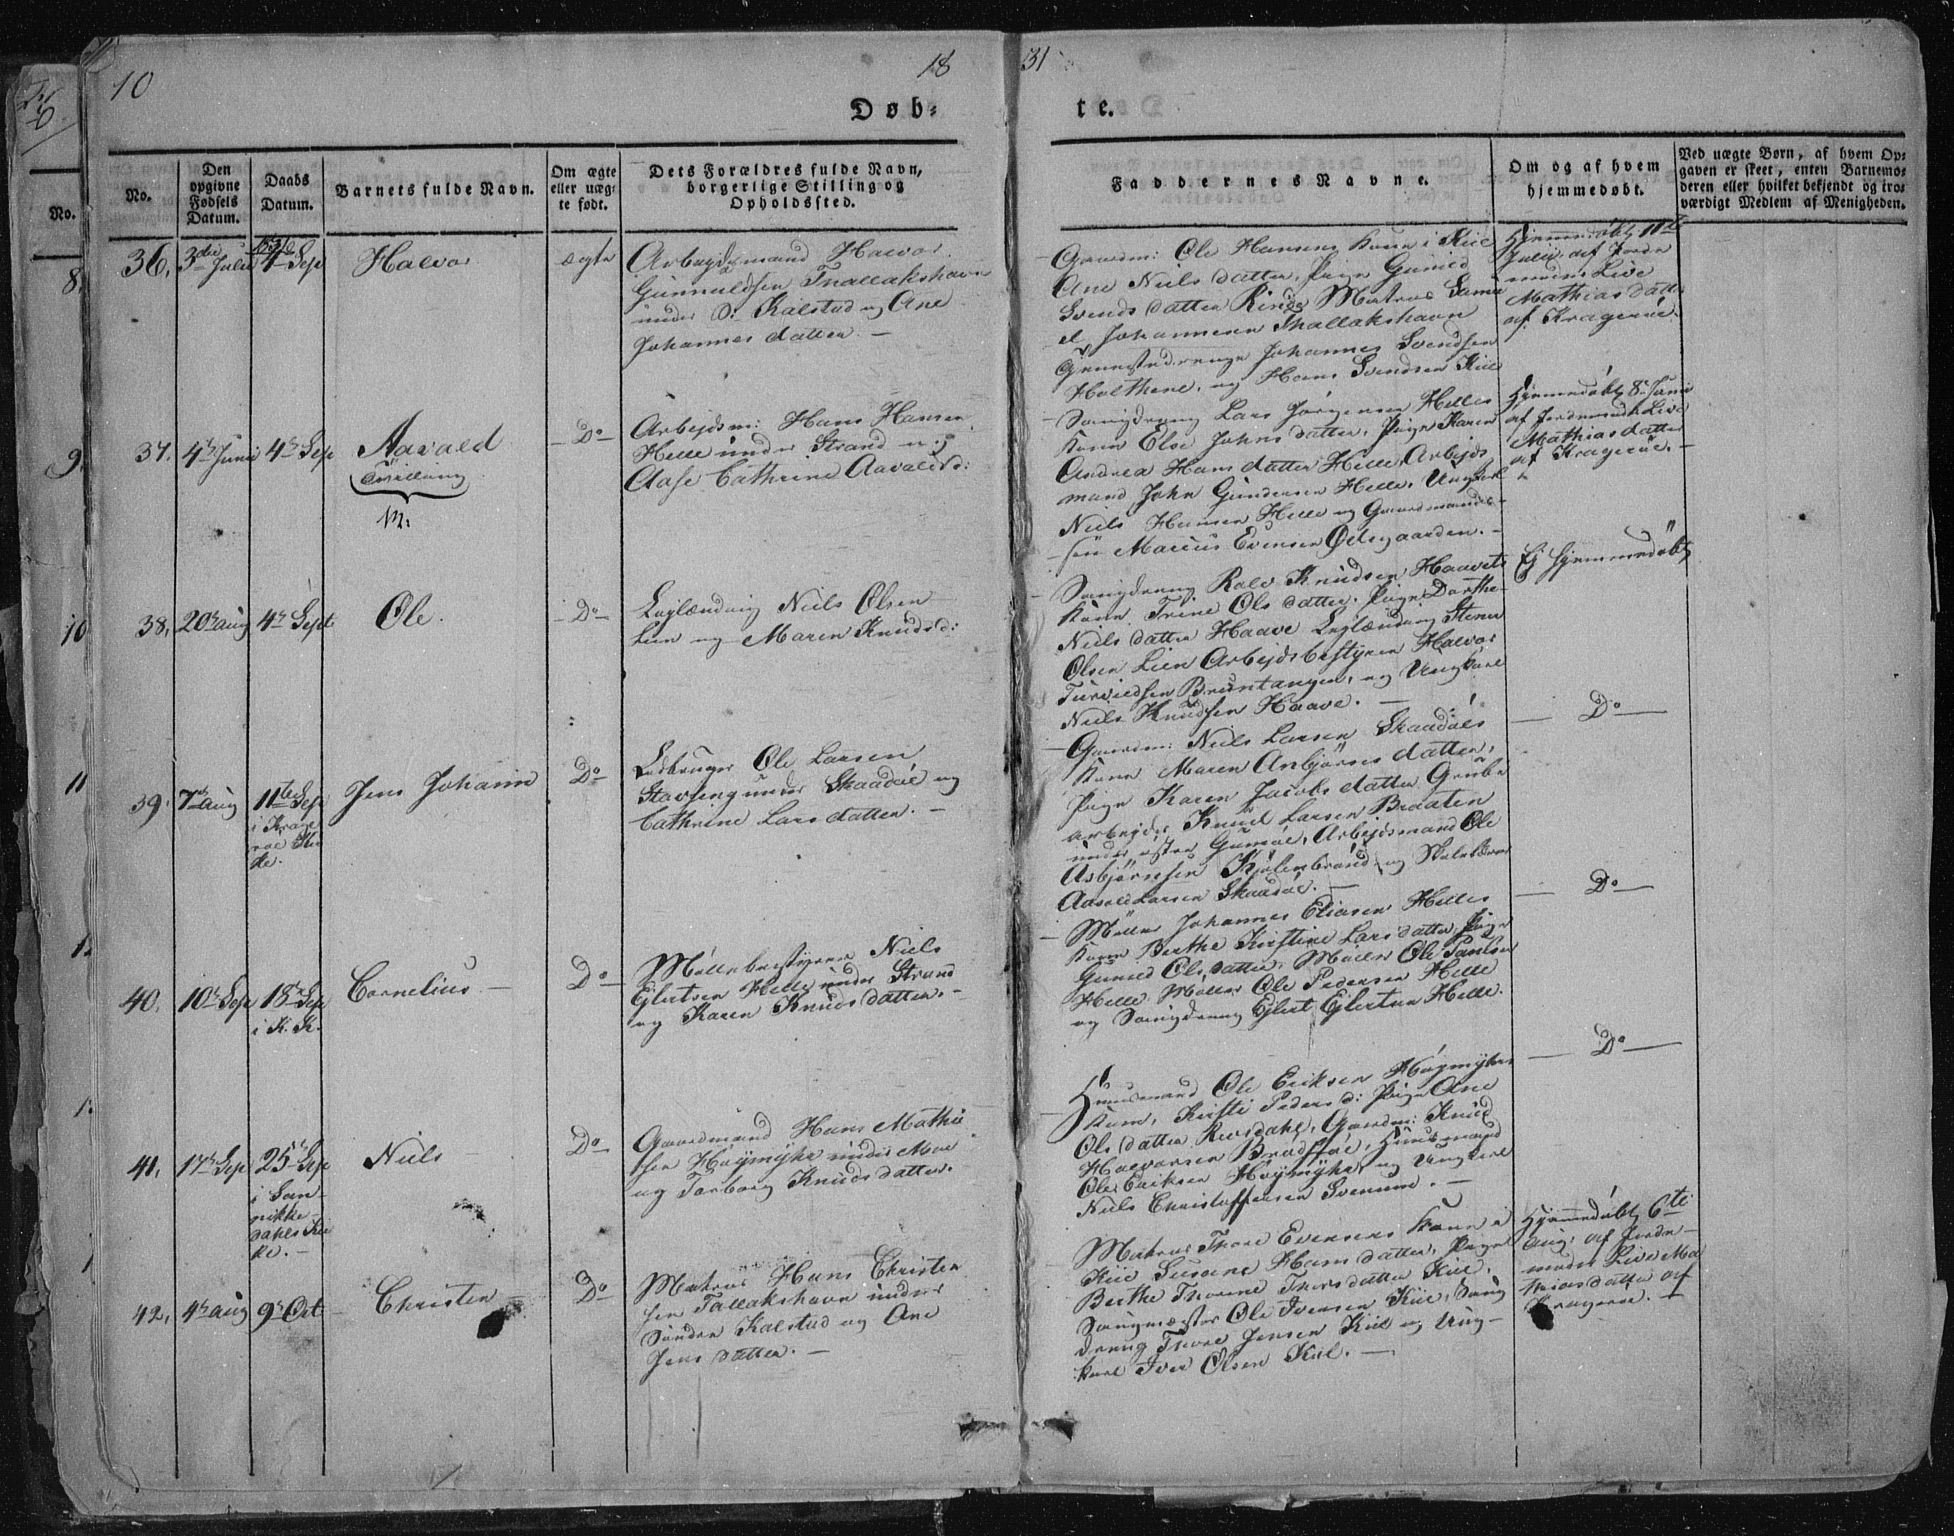 10
18
31
Døb-
te.
No.
Den opgivne Fødsels Datum.
Daabs Datum.
Barnets fulde Navn.
Om ægte eller uæg-te født.
Dets Forældres fulde Navn, borgerlige Stilling og Opholdssted.
Faddernes Navne.
Om og af hvem hjemmedøbt.
Ved uægte Børn, af hvem Op-gaven er skeet, enten Barnemo-deren eller hvilket bekjendt og tro-værdigt Medlem af Menigheden.
36. 3die Julii 4de Sep Halvor ægte
Arbeydsmand Halvor
Gunnuldsen Tnallakshavn
under S. Kalstad og Ane
Johannes datter. —
Gaardm: Ole Hansens Kone i Kiil
Ane Niels datter, Pige Gunild
Svends datter Matros Samu
el Johannesen Thallakshavn
Johannes Svendsen
Holthene, og Hans Svendsen Kiil
Hjemmedøbt 11te
Julii af Jorde
moder Live
Mathias datt:
af Kragerøe.
37. 4de Junii 4de Sep Aavald
Tvilling
m.
Do
Arbejdsm: Hans Hansen
Helle under Strand og
Aase Cathrine Aavaldsd:
Lars Jørgensen Helles
Kone Else Johns datter, Pige Karen
Andrea Hans datter Helle, Arbejds
mand John Gundersen Helle, Ungkarl
Niels Hansen Helle og Gaardmands-
søn Marcus Evensen Ødegaarden. —
Hjemmedøbt 8de Junii
af Jordemoder Live
Mathias datter
af Kragerøe. —
38. 20de aug 4de Sept Ole. Do
Leylænding Niels Olsen
Lien og Maren Knudsd:
Rolv Knudsen Haaves
Kone Trine Ols datter, Pige Dorthe
Niels datter Haave Leylænding Stener
Olsen Lien Arbejdsbestyrer Halvor
Bruntangen, og Ungkarl
Niels Knudsen Haave. —
Ej hjemmedøbt
39. 7de aug 11te Sep
i Krage
røe Kir
ke.
Jens Johann Do
Ole Larsen
Stavseng under Skaadøe og
Cathrine Lars datter. —
Gaardm: Niels Larsen Skaadøes
Kone Maren Anbjørns datter,
Pige Karen Jacobs datter Grube
arbejds Knud Larsen Braaten
under østre Gumøe, Arbejdsmand Ole
Asbjørnsen Kjølebrønd og Skolelærer
Aavold Larsen Skaadøe. —
— Do —
40. 10de Sep 18de Sep
i K. K.
Cornelius — Do
Møllebestyrer Niels
Ejlertsen Helle under Strand
og Karen Knuds datter. —
Møller Johannes Eliasen Helles
Kone Berthe Kirstine Lars datter, Pige
Gunild Ols datter, Møller Ole Paulsen
Helle Møller Ole Pedersen Helle
og Ejlert Ejlertsen Helle.
— Do —
41. 17de Sep 25de Sep
i San-
nikke-
dahls Kir
ke. —
Niels — Do
Gaardmand Hans Mathi
sen Høgmyhr under Moe
og Torborg Knuds datter.
Huusmand Ole Eriksen Høgmyhrs
Kone, Kirsti Pedersd: Pige Ane
Ols datter Reisdahl, Gaardm: Knud
Halvorsen Huusmand
Ole Eriksen Høgmyhr, og Ungkarl
Niels Christoffersen Svenum. —
— Do —
42. 4de aug 9de Oct — Christen — Do
Matros Hans Christen
sen Tallakshavn under
Søndre Kalstad og Ane
Jens datter. —
Matros Thore Evensens Kone i
Kiil Susane Hans datter, Pige
Berthe Thorine Thors datter Kiil,
Ole Iversen Kiil,
dreng Thore Jensen Kiil og Ung-
karl Iver Olsen Kiil. —
Hjemmedøbt 6te
Aug: af Jorde-
moder Live Ma
thias datter af
Kragerøe. —
8.
9.
10
11